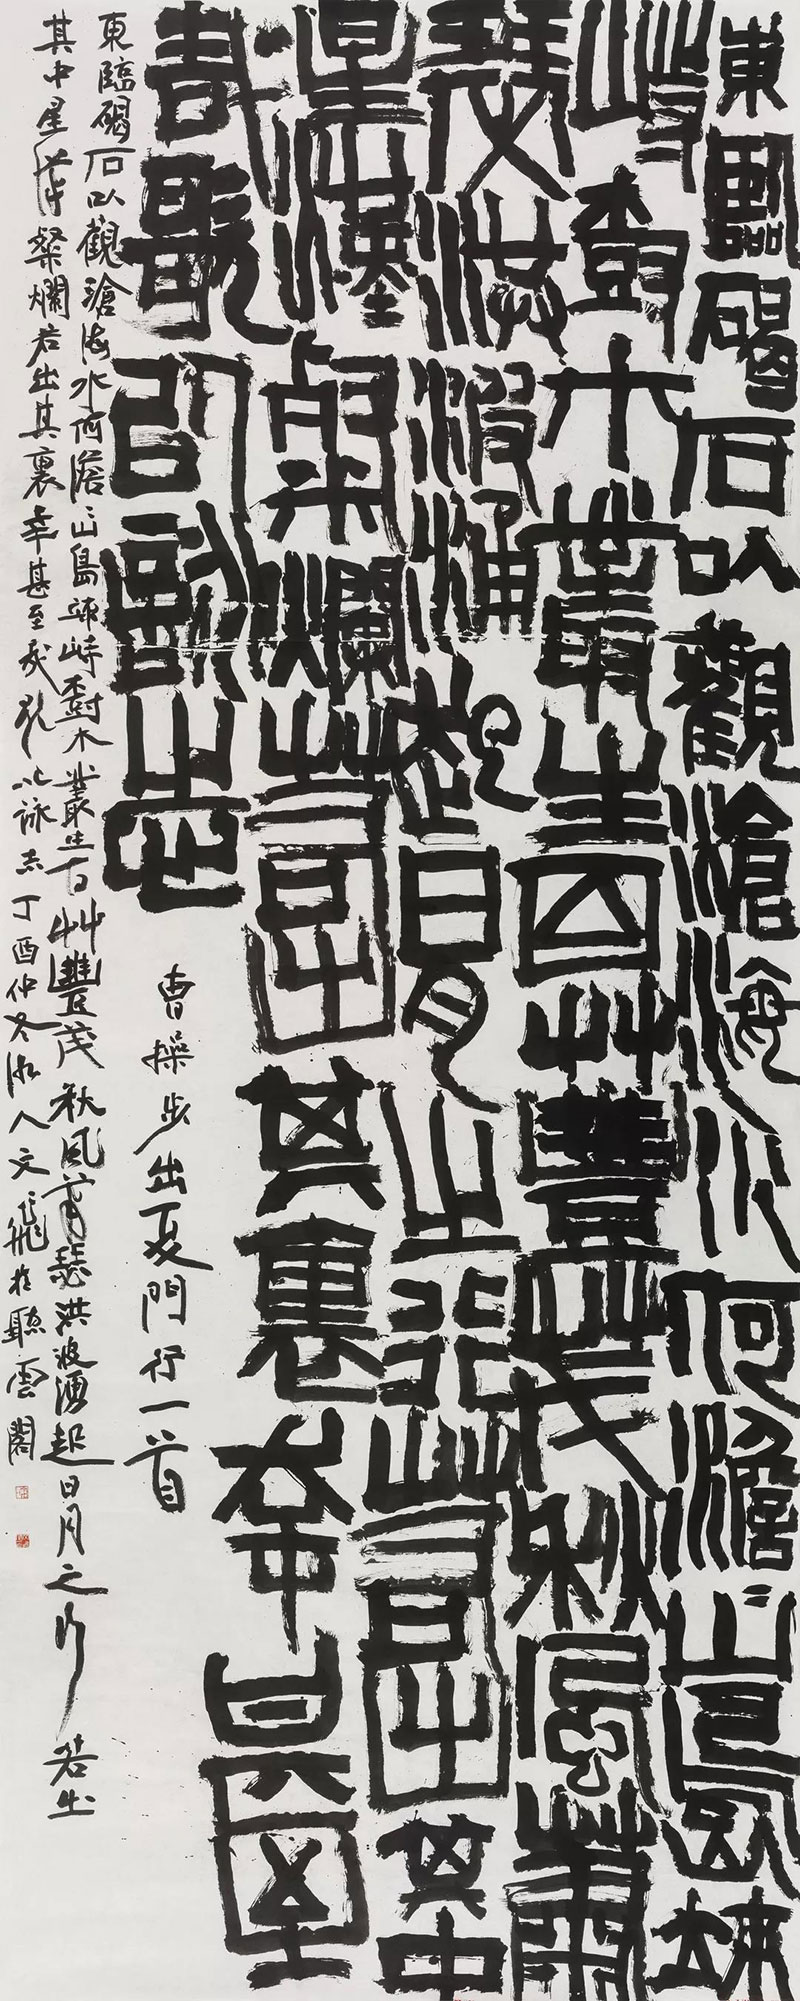 東臨碣石以觀滄海水何澹〻山島竦
峙樹木叢生百艸豐茂秋風蕭
瑟洪波湧起日月之行若出其中
星漢粲爛若出其裏幸甚至
哉歌以詠志
曹操步出夏門行一首
東臨碣石以觀滄海水何澹〻山島竦峙樹木叢生百艸豐茂秋風蕭瑟洪波湧起日月之行若出
其中星漢粲爛若出其裏幸甚至哉歌以詠志丁酉仲冬湘人文飛於聽雲閣